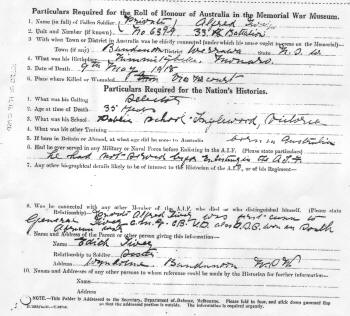 Particulars Required for the Roll of Honour of Australia in the Memorial War Museum.
1. Name (in full) of Fallen Soldier Private Alfred Tivey
2. Unit and Number (if known) No 639A 33rd Battalion
3. With what Town or District in Australia was he chiefly connected (under which his name ought to come on the Memorial)—
Town (if any) Bundanoon District State N.S.W
4. What was his Birthplace
5. Date of Death 9th May 1918
6. Place where Killed or Wounded
Particulars Required for the Nation's Histories.
1. What was his Calling
2. Age at time of Death 35 Years
3. What was his School Public School Inglewood, Victoria
4. What was his other Training
5. If born in Britain or Abroad, at what age did he come to Australia born in Australia
6. Had he ever served in any Military or Naval Force before Enlisting in the A.I.F. (Please state particulars)
he had not Served before Enlisting in the A.I.F.
7. Any other biographical details likely to be of interest to the Historian of the A.I.F., or of his Regiment—
8. Was he connected with any other Member of the A.I.F. who died or who distinguished himself. (Please state Relationship)—
Private Alfred Tivey was first cousin to
General Tivey C.M.G. C.B. V.D. also D.S.O. won in South
African war
9. Name and Address of the Parent or other person giving this information—
Name Edith Tivey
Relationship to Soldier Sister
Address Bundanoon N.S.W
10. Names and Addresses of any other persons to whom reference could be made by the Historian for further information—
Name
Address
NOTE.—This Folder is Addressed to the Secretary, Department of Defence, Melbourne. Please fold in four, and stick down gummed flap so that the address supplied is on the outside.